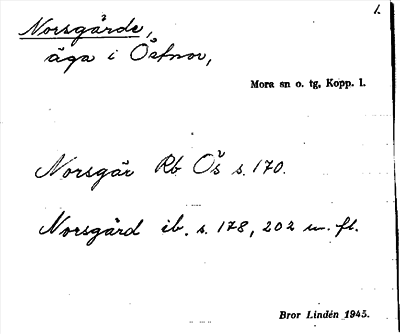 1.
Norsgårde,
äga i Östnor,
Mora sn o. tg, Kopp. l.
Norsgår Rb Ös s. 170.
Norsgård ib. s. 178, 202 m. fl.
Bror Lindén 1945.